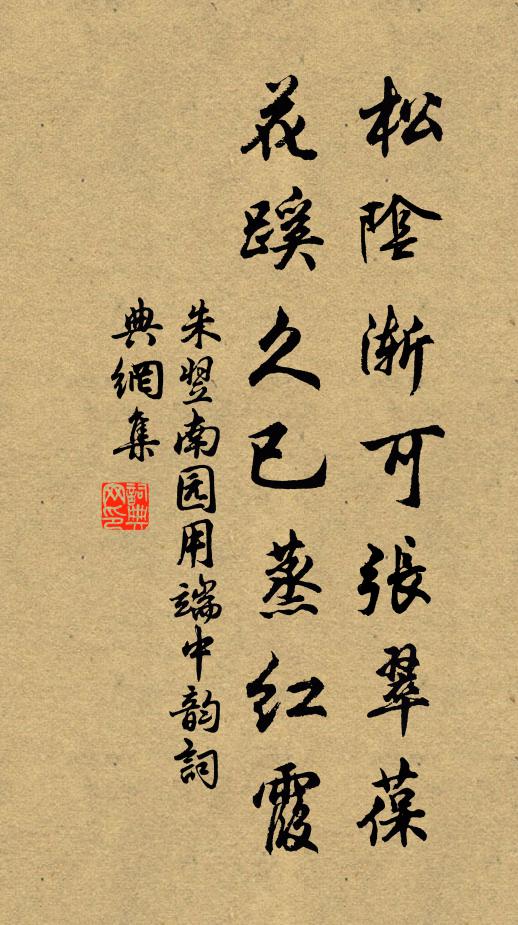 松陰漸可張翠葆
花蹊久已蒸紅霞
朱翌南园用端中韵詞
典網集
詞典
网印